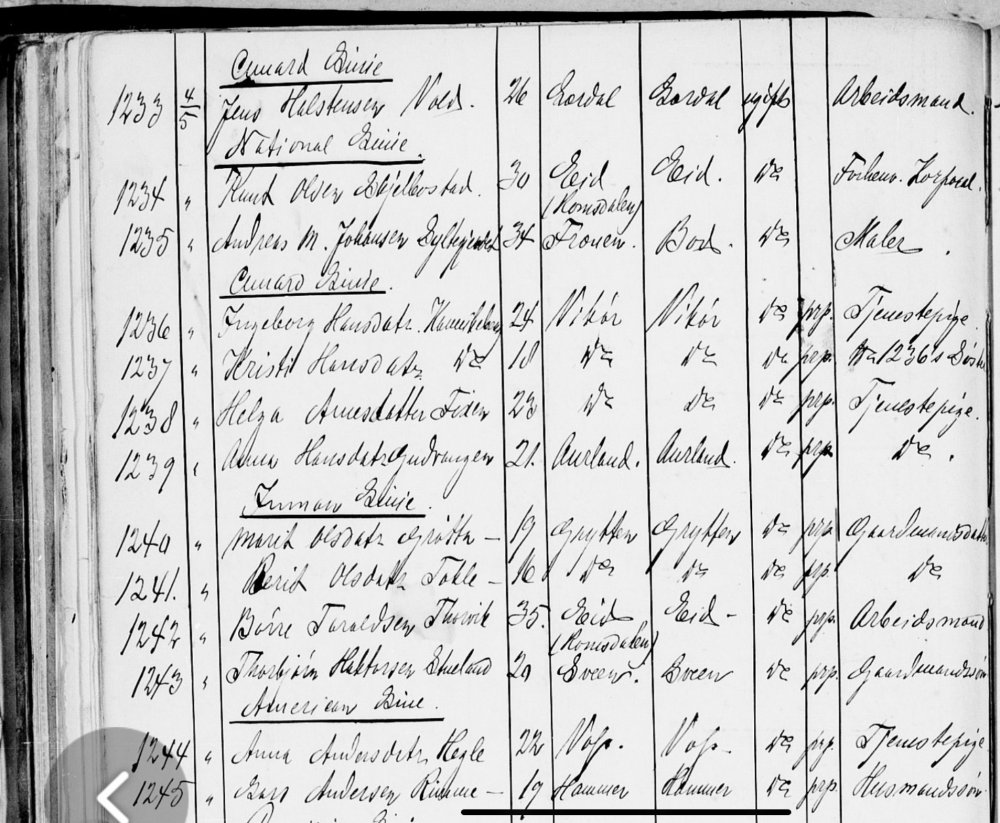 Cunard Linie
1233 4/5 Jens Halstensen Vold. 26 Lærdal Lærdal ugift Arbeidsmand.
National Linie.
1234 " Knut Olsen 30 Eid (Romsdalen) Eid. do Forhenv. Korporal.
1235 " Andreas M. Johansen 34 Frænen. Bod. do Maler.
Cunard Linie.
1236 " Ingeborg Hansdatr. 24 Vikør Vikør do prp. Tjenestepige.
1237 " Kristi Hansdatr do 18 do do do prp. No 1236s Søster
1238 " Helga Arnesdatter 23 do do do prp. Tjenestepige.
1239 " Anna Hansdatr Gudvangen 21. Aurland. Aurland. do prp. do.
Inman Linie.
1240 " Marit Olsdatr Grøtta – 19 Grytten Grytten do prp. Gaardmandsdatter
1241. " Berit Olsdatr – 16 do do do prp. do
1242 " Børre Taraldsen Thorvik 35. Eid (Romsdalen) Eid – do prp. Arbeidsmand
1243 " Thorbjørn 20 Sveen. Sveen do prp. Gaardmandssøn
American Linie.
1244 " Anna Andersdatr Hegle 22 Voss. Voss – do prp. Tjenestepige
1245 " Lars Andersen – 19 Hammer Hammer do prp. Husmandssøn